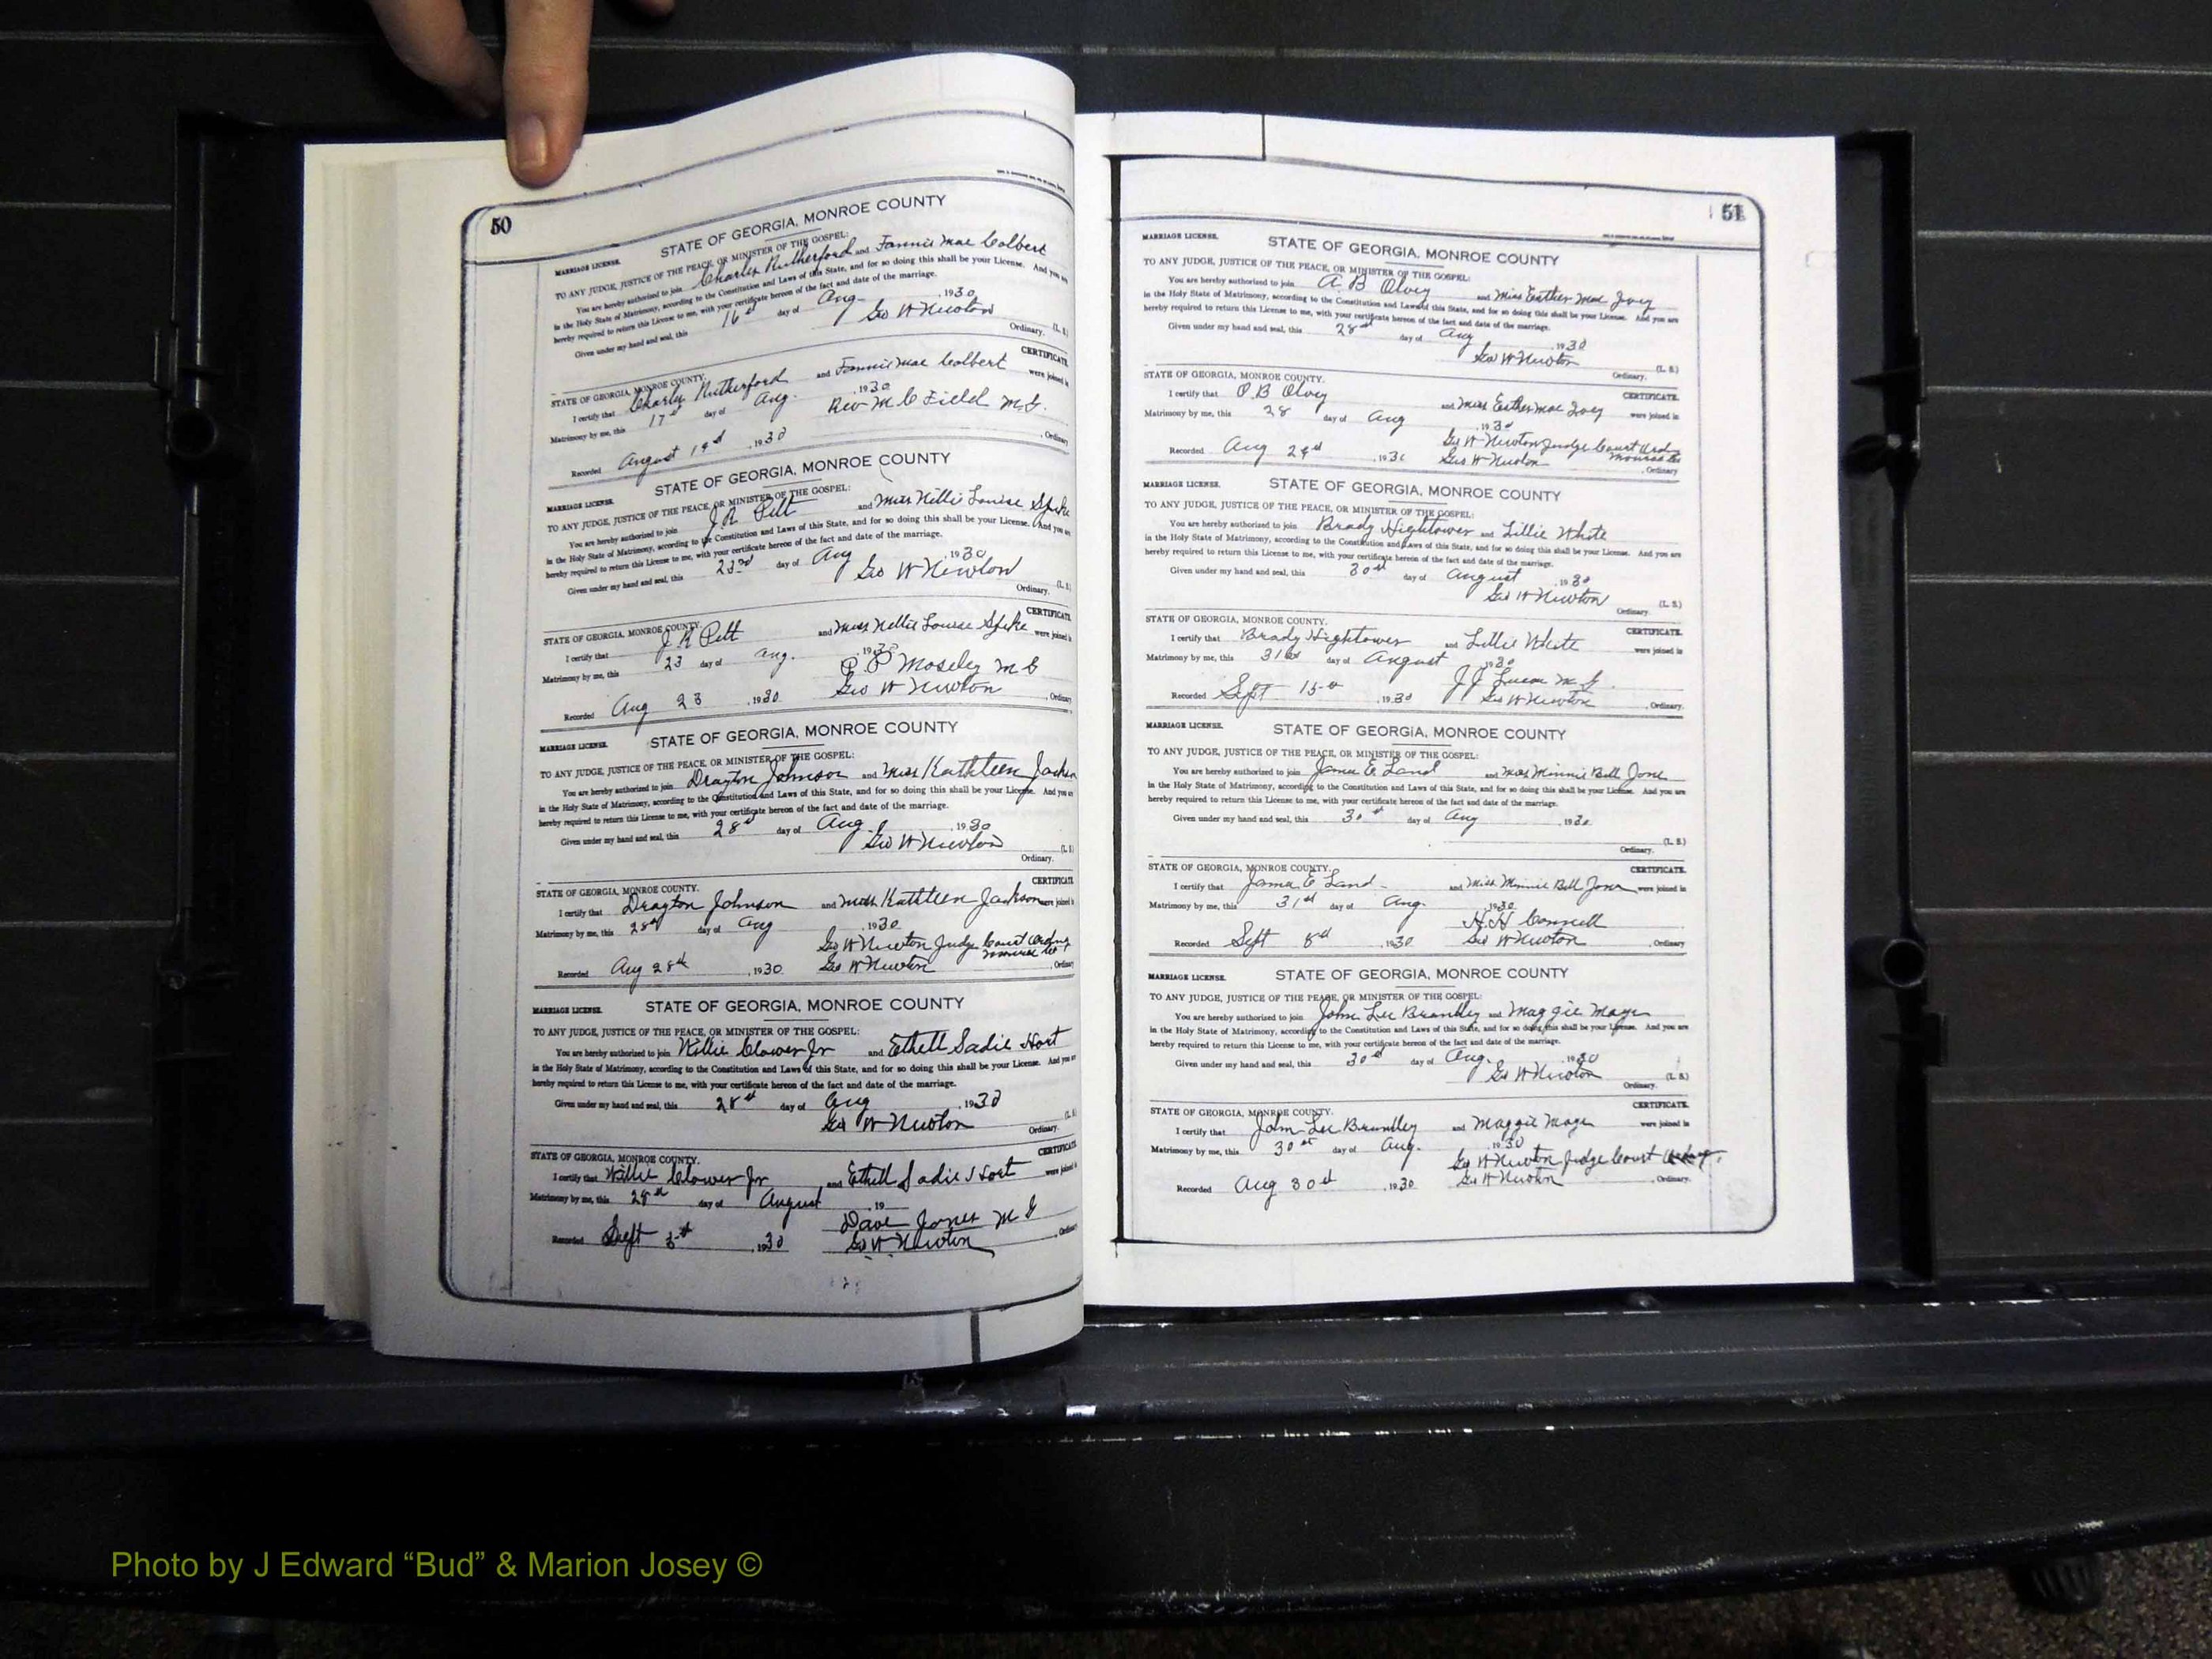 50
STATE OF GEORGIA, MONROE COUNTY
MARRIAGE LICENSE.
TO ANY JUDGE, JUSTICE OF THE PEACE, OR MINISTER OF THE GOSPEL:
You are hereby authorized to join Charley Rutherford and Fannie Mae Colbert
in the Holy State of Matrimony, according to the Constitution and Laws of this State, and for so doing this shall be your License. And you are
hereby required to return this License to me, with your certificate hereon of the fact and date of the marriage.
Given under my hand and seal, this 16th day of Aug 1930
Geo W Newton
Ordinary. (L. S.)
CERTIFICATE
STATE OF GEORGIA, MONROE COUNTY.
I certify that Charley Rutherford and Fannie Mae Colbert were joined in
Matrimony by me, this 17th day of Aug. , 1930
Rev M C Field M.G.
Recorded August 19th , 1930 , Ordinary
STATE OF GEORGIA, MONROE COUNTY
MARRIAGE LICENSE.
TO ANY JUDGE, JUSTICE OF THE PEACE, OR MINISTER OF THE GOSPEL:
You are hereby authorized to join J R Pitt and Miss Nellie Louise Spike
in the Holy State of Matrimony, according to the Constitution and Laws of this State, and for so doing this shall be your License. And you are
hereby required to return this License to me, with your certificate hereon of the fact and date of the marriage.
Given under my hand and seal, this 23rd day of Aug , 1930
Geo W Newton
Ordinary. (L. S.)
CERTIFICATE
STATE OF GEORGIA, MONROE COUNTY.
I certify that J R Pitt and Miss Nellie Louise Spike were joined in
Matrimony by me, this 23 day of Aug. , 1930
P P Moseley M G
Geo W Newton
Recorded Aug 23 , 1930 , Ordinary
STATE OF GEORGIA, MONROE COUNTY
MARRIAGE LICENSE.
TO ANY JUDGE, JUSTICE OF THE PEACE, OR MINISTER OF THE GOSPEL:
You are hereby authorized to join Drayton Johnson and Miss Kathleen Jackson
in the Holy State of Matrimony, according to the Constitution and Laws of this State, and for so doing this shall be your License. And you are
hereby required to return this License to me, with your certificate hereon of the fact and date of the marriage.
Given under my hand and seal, this 28th day of Aug , 1930
Geo W Newton
Ordinary. (L. S.)
CERTIFICATE
STATE OF GEORGIA, MONROE COUNTY.
I certify that Drayton Johnson and Miss Kathleen Jackson were joined in
Matrimony by me, this 28th day of Aug , 1930
Geo W Newton Judge Court Ordny
Monroe Co
Recorded Aug 28th , 1930 Geo W Newton , Ordinary
STATE OF GEORGIA, MONROE COUNTY
MARRIAGE LICENSE.
TO ANY JUDGE, JUSTICE OF THE PEACE, OR MINISTER OF THE GOSPEL:
You are hereby authorized to join Willie Clower Jr and Ethell Sadie Hort
in the Holy State of Matrimony, according to the Constitution and Laws of this State, and for so doing this shall be your License. And you are
hereby required to return this License to me, with your certificate hereon of the fact and date of the marriage.
Given under my hand and seal, this 28th day of Aug , 1930
Geo W Newton
Ordinary. (L. S.)
CERTIFICATE
STATE OF GEORGIA, MONROE COUNTY.
I certify that Willie Clower Jr and Ethell Sadie Hort were joined in
Matrimony by me, this 28th day of August , 19
Dave Jones M G
Recorded Sept 5th , 1930 Geo W Newton , Ordinary
51
MARRIAGE LICENSE.
STATE OF GEORGIA, MONROE COUNTY
TO ANY JUDGE, JUSTICE OF THE PEACE, OR MINISTER OF THE GOSPEL:
You are hereby authorized to join A B Olvey and Miss Esther Mae Ivey
in the Holy State of Matrimony, according to the Constitution and Laws of this State, and for so doing this shall be your License. And you are
hereby required to return this License to me, with your certificate hereon of the fact and date of the marriage.
Given under my hand and seal, this 28th day of Aug , 1930
Geo W Newton
Ordinary. (L. S.)
STATE OF GEORGIA, MONROE COUNTY.
CERTIFICATE.
I certify that O B Olvey and Miss Esther Mae Ivey were joined in
Matrimony by me, this 28 day of Aug , 1930
Geo W Newton Judge Court Ord
Monroe Co
Recorded Aug 29th , 1930 Geo W Newton , Ordinary
MARRIAGE LICENSE.
STATE OF GEORGIA, MONROE COUNTY
TO ANY JUDGE, JUSTICE OF THE PEACE, OR MINISTER OF THE GOSPEL:
You are hereby authorized to join Brady Hightower and Lillie White
in the Holy State of Matrimony, according to the Constitution and Laws of this State, and for so doing this shall be your License. And you are
hereby required to return this License to me, with your certificate hereon of the fact and date of the marriage.
Given under my hand and seal, this 30th day of August , 1930
Geo W Newton
Ordinary. (L. S.)
STATE OF GEORGIA, MONROE COUNTY.
CERTIFICATE.
I certify that Brady Hightower and Lillie White were joined in
Matrimony by me, this 31st day of August 1930
J J Lucas M G.
Recorded Sept 15th , 1930 Geo W Newton , Ordinary.
MARRIAGE LICENSE.
STATE OF GEORGIA, MONROE COUNTY
TO ANY JUDGE, JUSTICE OF THE PEACE, OR MINISTER OF THE GOSPEL:
You are hereby authorized to join James E Land and Miss Minnie Bell Jone
in the Holy State of Matrimony, according to the Constitution and Laws of this State, and for so doing this shall be your License. And you are
hereby required to return this License to me, with your certificate hereon of the fact and date of the marriage.
Given under my hand and seal, this 30th day of Aug , 1930
Ordinary. (L. S.)
STATE OF GEORGIA, MONROE COUNTY.
CERTIFICATE.
I certify that James E Land and Miss Minnie Bell Jones were joined in
Matrimony by me, this 31st day of Aug. , 1930
H. H Connell
Recorded Sept 8th , 1930 Geo W Newton , Ordinary
MARRIAGE LICENSE.
STATE OF GEORGIA, MONROE COUNTY
TO ANY JUDGE, JUSTICE OF THE PEACE, OR MINISTER OF THE GOSPEL:
You are hereby authorized to join John Lee Brantley and Maggie Mays
in the Holy State of Matrimony, according to the Constitution and Laws of this State, and for so doing this shall be your License. And you are
hereby required to return this License to me, with your certificate hereon of the fact and date of the marriage.
Given under my hand and seal, this 30th day of Aug. , 1930
Geo W Newton
Ordinary. (L. S.)
STATE OF GEORGIA, MONROE COUNTY.
CERTIFICATE.
I certify that John Lee Brantley and Maggie Mays were joined in
Matrimony by me, this 30th day of Aug. 1930
Geo W Newton Judge Court
Recorded Aug 30th , 1930 Geo W Newton , Ordinary.
Photo by J Edward “Bud” & Marion Josey ©